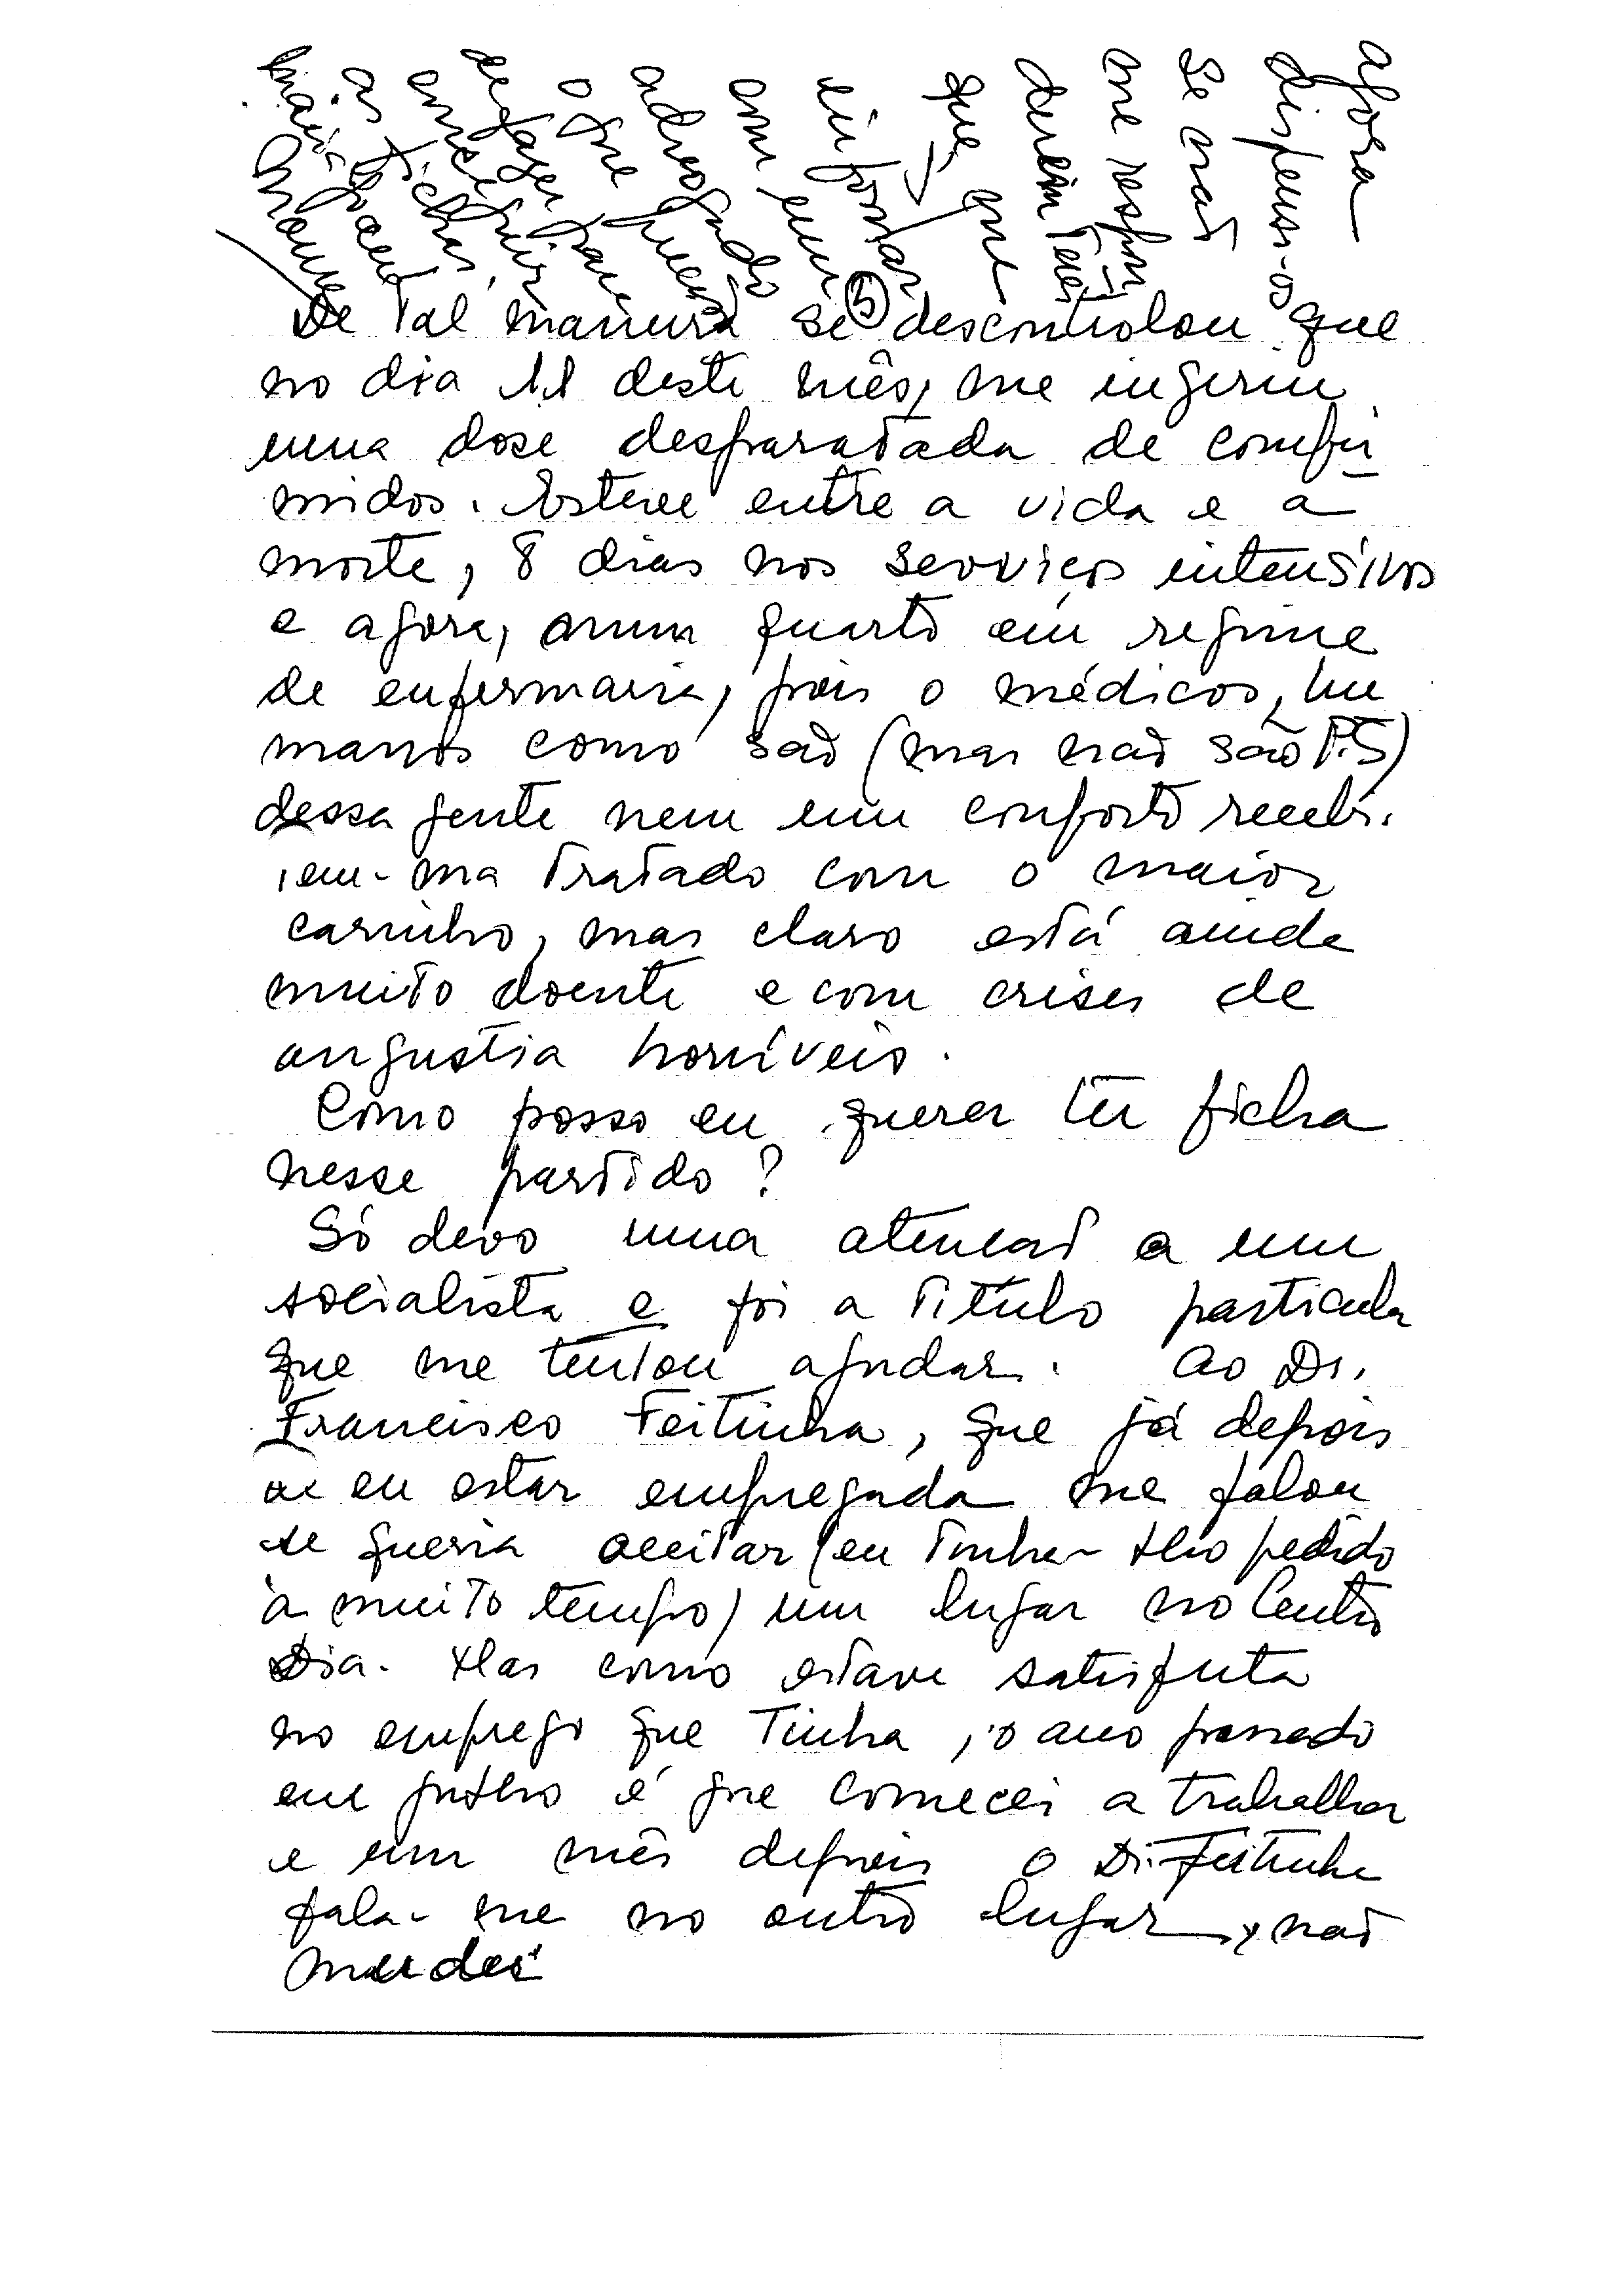 De tal maneira se descontrolou que
no dia 11 deste mês, me ingeriu
uma dose desparatada de compri
midos. Esteve entre a vida e a
morte, 8 dias nos serviços intensivos
e agora, num quarto em regime
de enfermaria, pois o médicos, hu
manos como são (mas não são P.S)
dessa gente nem um conforto recebi.
tem-ma tratado com o maior
carinho, mas claro está ainda
muito doente e com crises de
angustia horríveis.
Como posso eu querer ter ficha
nesse partido?
Só devo uma atenção a um
socialista e foi a título particular
que me tentou ajudar. Ao Dr.
Francisco Feitinha, que já depois
de eu estar empregada me falou
se queria aceitar (eu tinha-lho pedido
à muito tempo) um lugar no Centro
Dia. Mas como estava satisfeita
no emprego que tinha, o ano passado
em julho é que comecei a trabalhar
e um mês depois o Dr. Feitinha
fala-me no outro lugar, não
mudei
5
agora
dispenso-o
Se não
me respon
derem terei
que, me
informar
com um
advogado
o que quero
de fazer para
conseguir
as fichas,